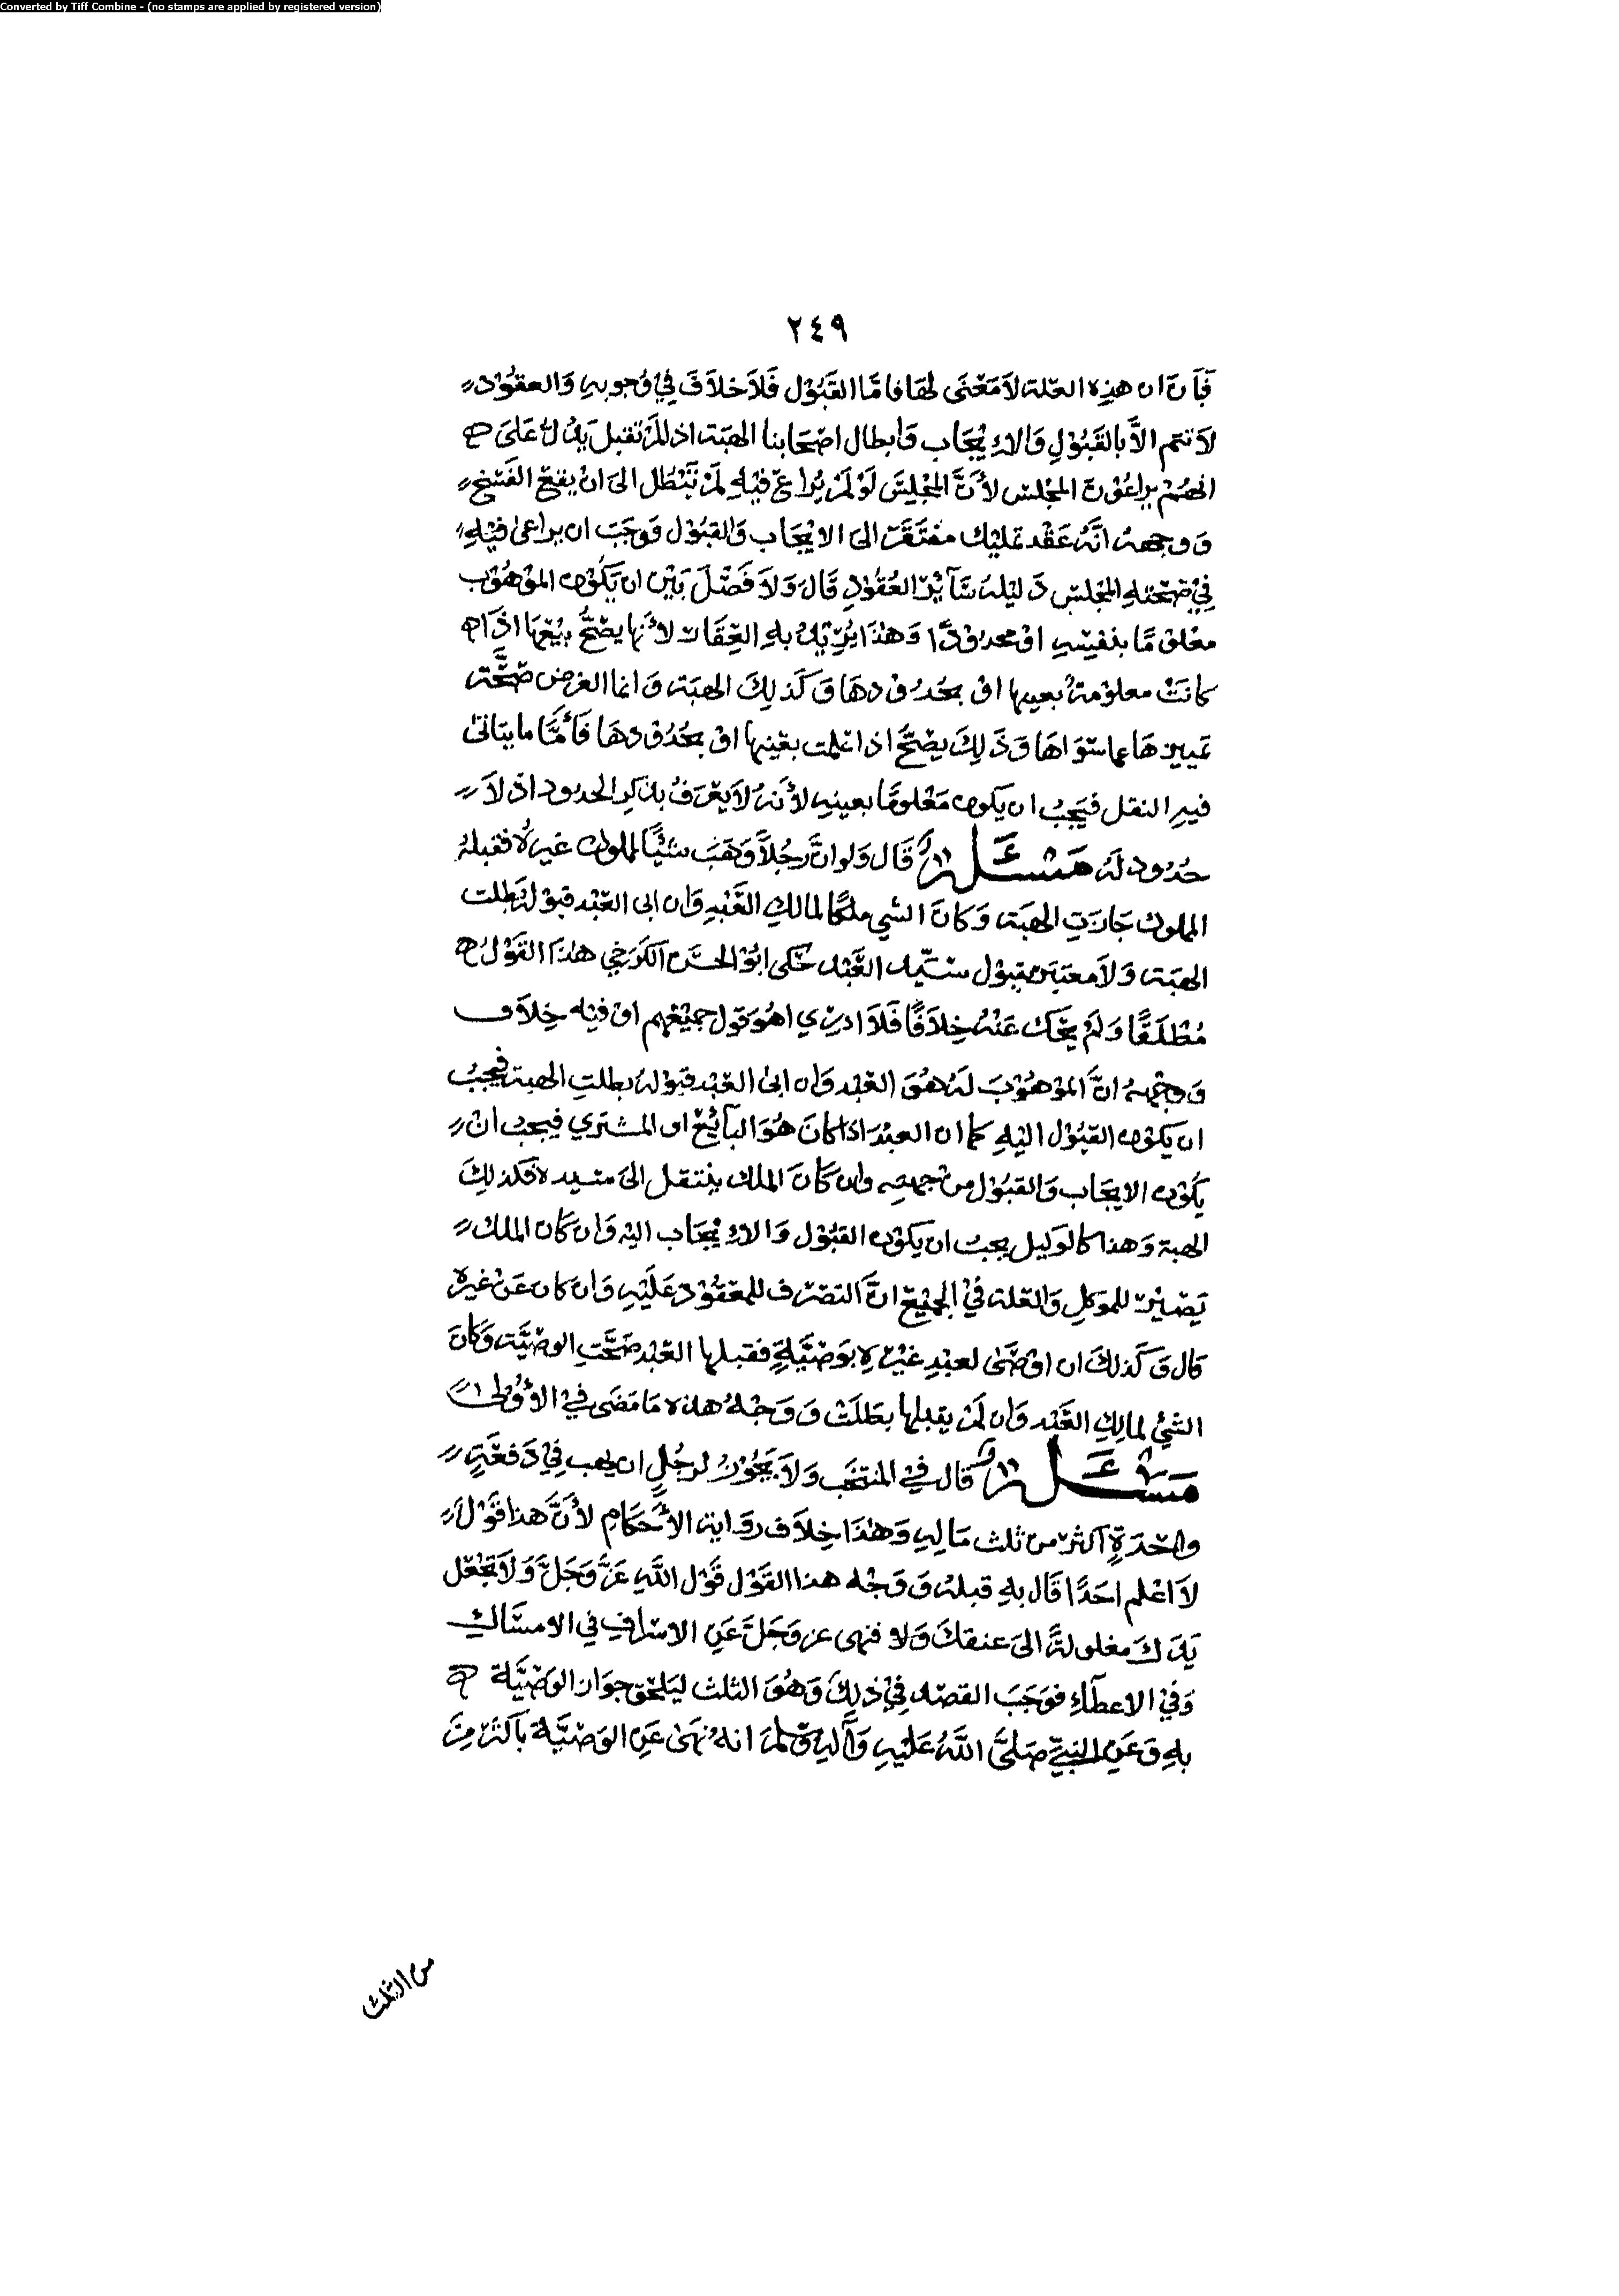 Converted by Tiff Combine - (no stamps are applied by registered version)
٢٤٩
فبان ان هذه العلة لا معنى لها فاما القبول فلا خلاف في وجوبه والعقود
لا تتم الا بالقبول والايجاب وابطال اصحابنا الهبة اذ لم تقبل يدل على
انهم يراعون المجلس لأن المجلس لو لم يراع فيه لم تبطل الى ان يقع الفسخ
ووجهه انه عقد تمليك مفتقر الى الايجاب والقبول فوجب ان يراعى فيه
في صحته المجلس دليله سائر العقود قال ولا فصل بين ان يكون الموهوب
معلوما بنفسه او محدودا وهذا يريد به العقارات لأنها يصح بيعها اذا
كانت معلومة بعينها او بحدودها وكذلك الهبة وانما الغرض صحة
تمييزها عما سواها وذلك يصح اذا علمت بعينها او بحدودها فأما ما يتاتى
فيه النقل فيجب ان يكون معلوما بعينه لأنه لا يعرف بذكر الحدود اذ لا
حدود له مسئلة قال ولو ان رجلا وهب شيئا لمملوك غيره فقبله
المملوك جازت الهبة وكان الشي ملكا لمالك العبد وان ابى العبد قبوله بطلت
الهبة ولا معتبر بقبول سيد العبد حكى ابو الحسن الكرخي هذا القول
مطلقا ولم يحك عنه خلافا فلا ادري اهو قول جميعهم او فيه خلاف
ووجهه ان الموهوب له هو العبد وان ابى العبد قبوله بطلت الهبة فيجب
ان يكون القبول اليه كما ان العبد اذا كان هو البائع او المشتري فيجب ان
يكون الايجاب والقبول من جهته وان كان الملك ينتقل الى سيده فكذلك
الهبة وهذا كالوكيل يجب ان يكون القبول والايجاب اليه وان كان الملك
يصير للموكل والعلة في الجميع ان التصرف للمعقود عليه وان كان عن غيره
قال وكذلك ان اوصى لعبد غيره بوصية فقبلها العبد صحت الوصية وكان
الشي لمالك العبد وان لم يقبلها بطلت ووجه هذه ما مضى في الأولى
مسئلة قال في المنتخب ولا يجوز لرجل ان يهب في دفعة
واحدة اكثر من ثلث ماله وهذا خلاف رواية الأحكام لأن هذا قول
لا اعلم احدا قال به قبله ووجه هذا القول قول الله عز وجل ولا تجعل
يدك مغلولة الى عنقك ولا فنهى عز وجل عن الاسراف في الامساك
وفي الاعطاء فوجب القصد في ذلك وهو الثلث ليلحق جواز الوصية
به وعن النبي صلى الله عليه وآله وسلم انه نهى عن الوصية بأكثر من
من الثلث